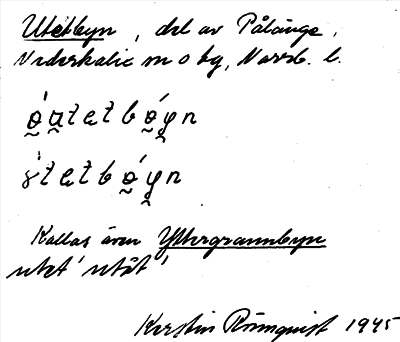 Utetbyn, del av Pålänge,
Nederkalix sn o tg, Norrb. l.
Kallas även Yttergrannbyn
utet 'utåt'
Kerstin Rönnquist 1945